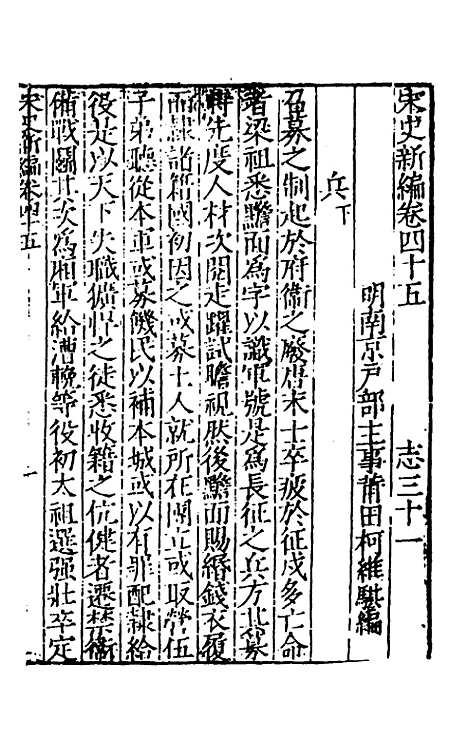 宋史新編卷四十五　志三十一
明南京戶部主事莆田柯維騏編
兵下
召募之制起於府衛之廢唐末士卒疲於征戍多亡命
者梁祖悉黵而為字以識軍號是為長征之兵方其募
時先度人材次閱走躍試瞻視然後黵面賜緡錢衣履
而隸諸籍國初因之或募土人就所在團立或取營伍
子弟聽從本軍或募饑民以補本城或以有罪配隸給
役是以天下失職獷悍之徒悉收籍之伉健者遷禁衛
備戰鬬其次為廂軍給漕輓等役初太祖選强壯卒定
宋史新編卷四十五　一